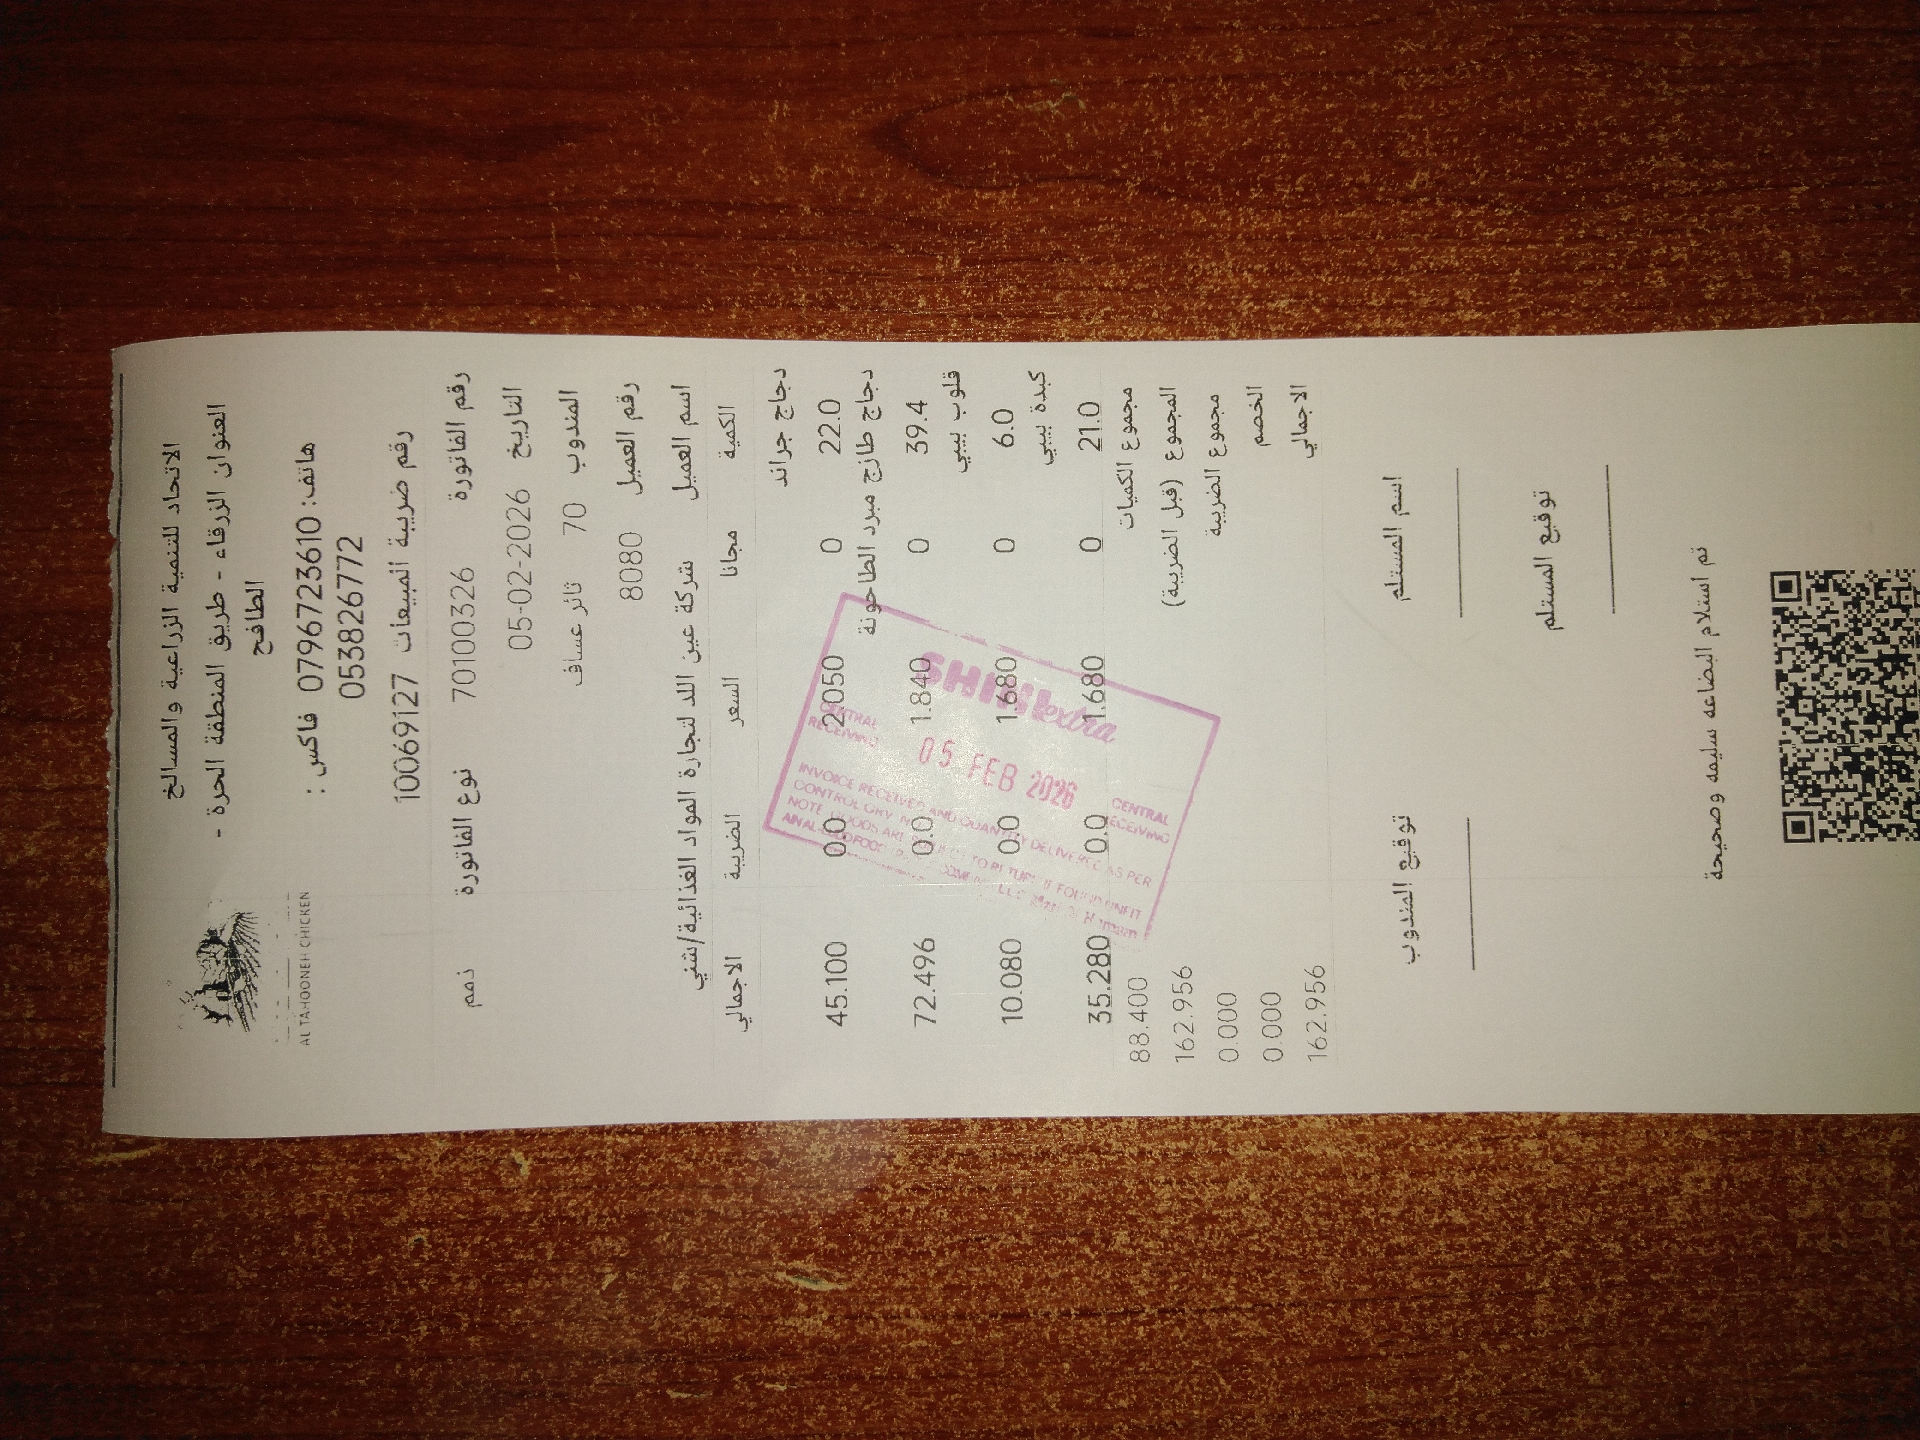 الاتحاد للتنمية الزراعية والمسالخ
العنوان الزرقاء - طريق المنطقة الحرة -
الطافح
هاتف: 0796723610 فاكس :
053826772
AL TAHOONEH CHICKEN
رقم ضريبة المبيعات 10069127
رقم الفاتورة 70100326 نوع الفاتورة ذمم
التاريخ 05-02-2026
المندوب 70 ثائر عساف
رقم العميل 8080
اسم العميل شركة عين اللد لتجارة المواد الغذائية/شني
الكمية مجانا السعر الضريبة الاجمالي
دجاج جراند
22.0 0 2.050 0.0 45.100
دجاج طازج مبرد الطاحونة
39.4 0 1.840 0.0 72.496
قلوب بيبي
6.0 0 1.680 0.0 10.080
كبدة بيبي
21.0 0 1.680 0.0 35.280
مجموع الكميات 88.400
المجموع (قبل الضريبة) 162.956
مجموع الضريبة 0.000
الخصم 0.000
الاجمالي 162.956
extra
CENTRAL
RECEIVING
05 FEB 2026
CENTRAL
RECEIVING
INVOICE RECEIVED AND QUANTITY DELIVERED AS PER
CONTROL GRV
NOTE GOODS ARE TO RETURN IF FOUND UNFIT
اسم المستلم توقيع المندوب
توقيع المستلم
تم استلام البضاعه سليمه وصحيحة